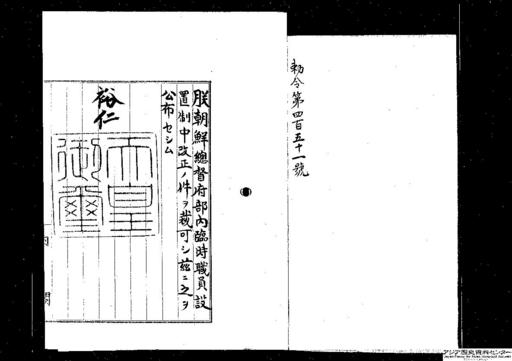 勅令第四百五十一號
朕朝鮮總督府部內臨時職員設
置制中改正ノ件ヲ裁可シ茲ニ之ヲ
公布セシム
裕仁
天皇
御璽
内閣
アジア歴史資料センター